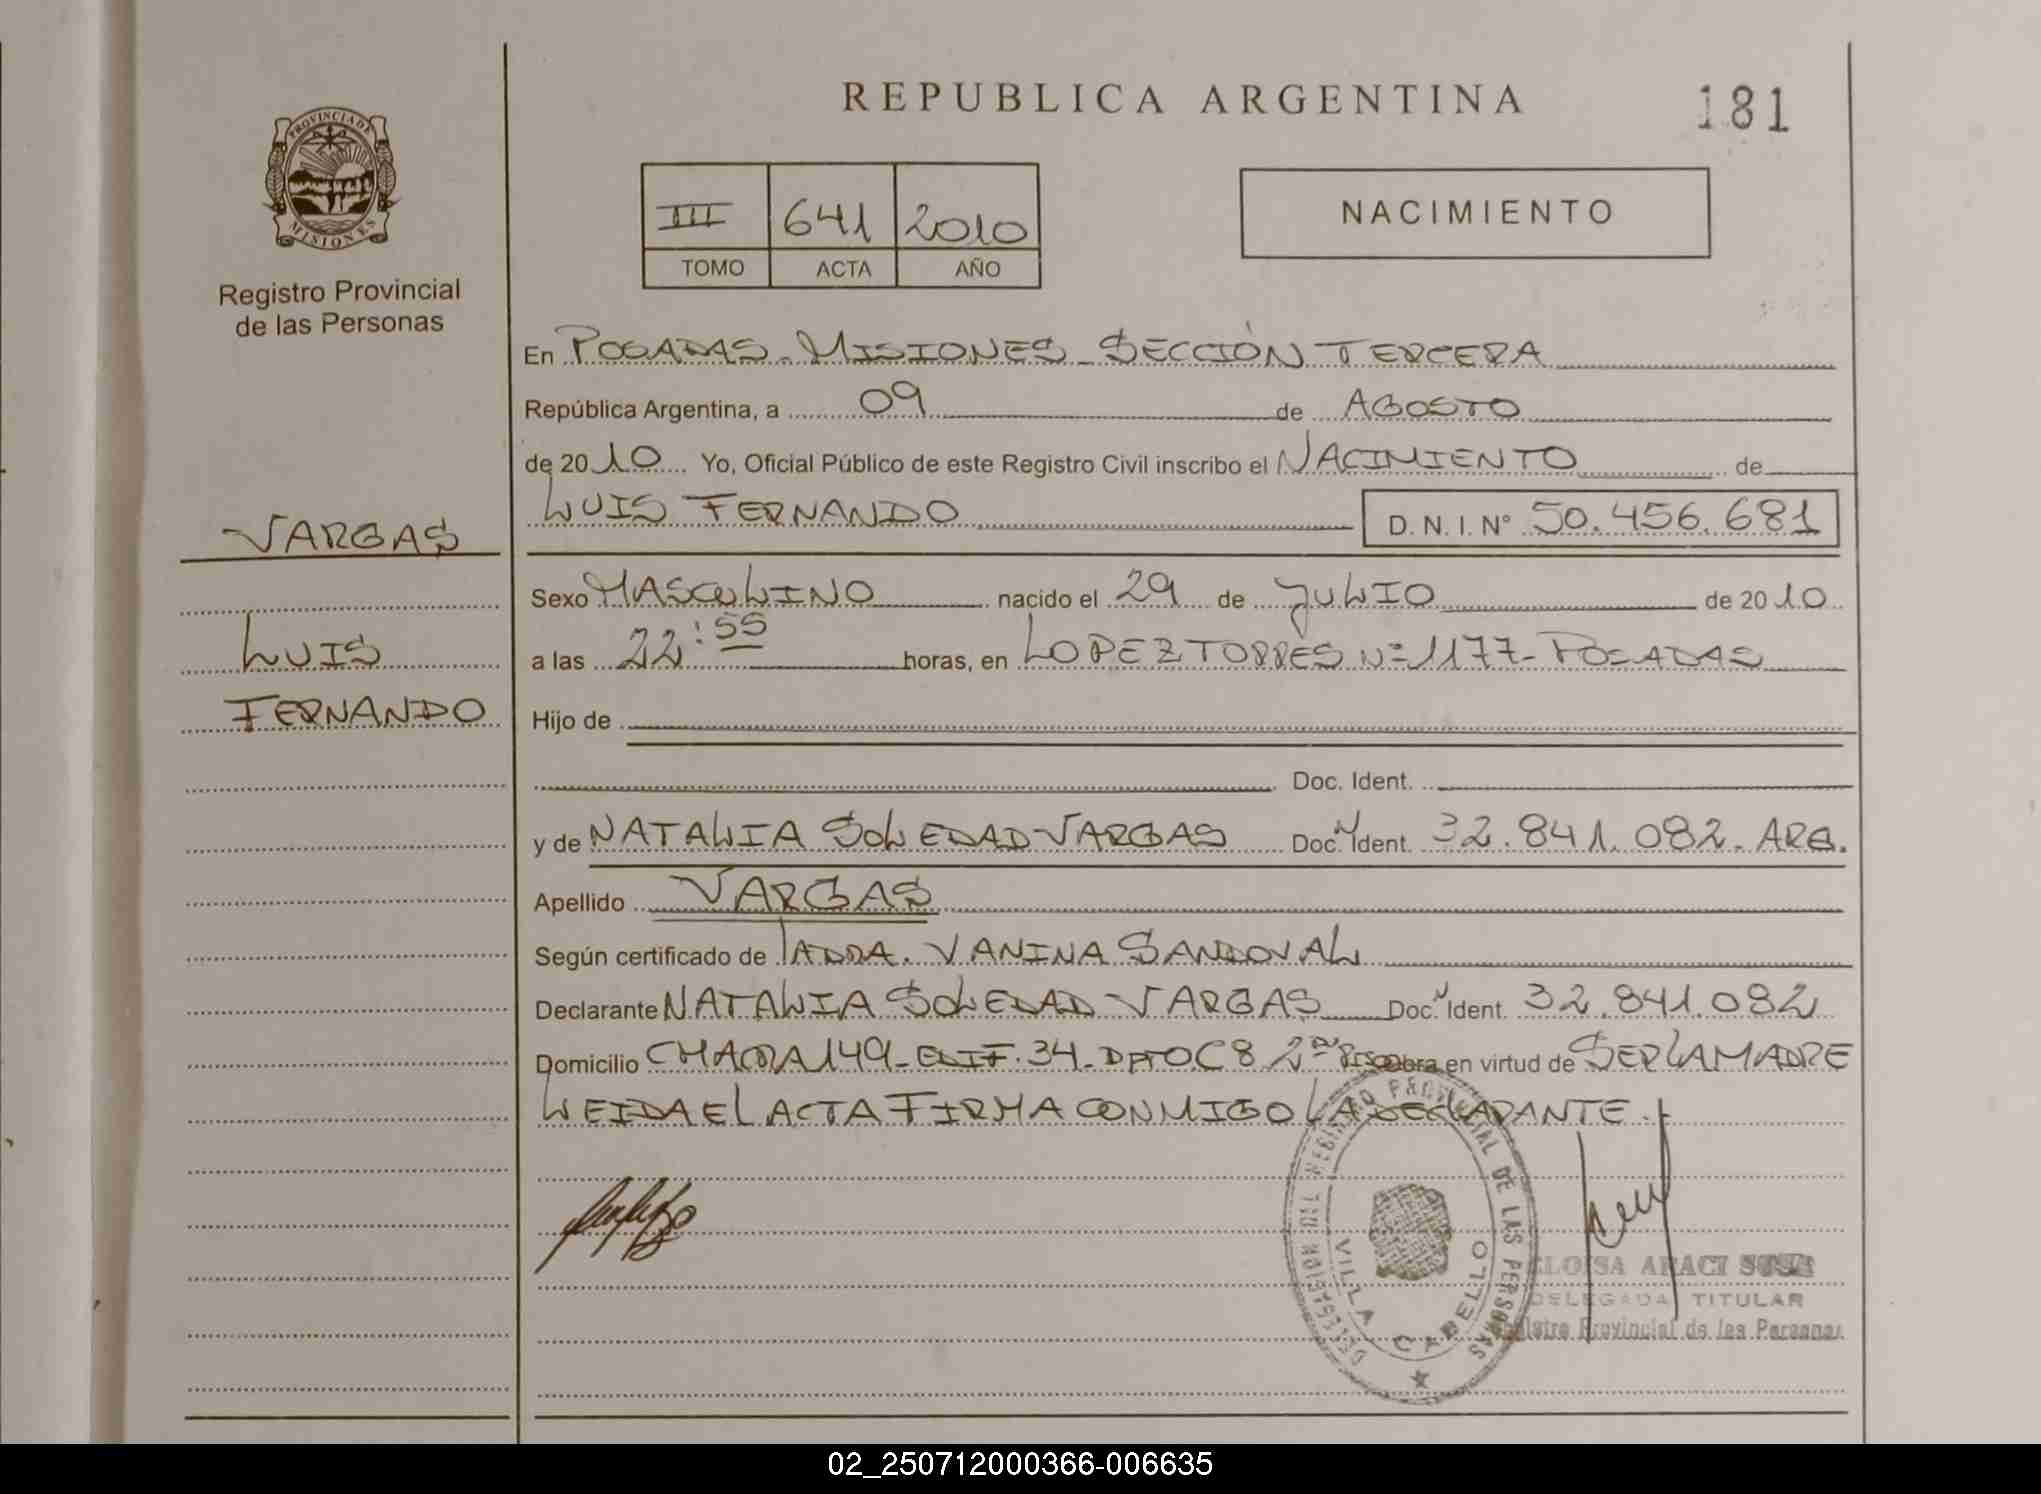 REPUBLICA ARGENTINA
181
PROVINCIA DE
MISIONES
Registro Provincial
de las Personas
III 641 2010
TOMO ACTA AÑO
NACIMIENTO
En POSADAS - MISIONES - SECCIÓN TERCERA
República Argentina, a 09 de AGOSTO
de 2010 Yo, Oficial Público de este Registro Civil inscribo el NACIMIENTO de
LUIS FERNANDO D.N.I. N° 50.456.681
VARGAS
LUIS
FERNANDO
Sexo MASCULINO nacido el 29 de JULIO de 2010
a las 22:55 horas, en LOPEZ TORRES N=1177-POSADAS
Hijo de
Doc. Ident.
y de NATALIA SOLEDAD VARGAS Doc. Ident. 32.841.082. ARG.
Apellido VARGAS
Según certificado de VANINA SANDOVAL
Declarante NATALIA SOLEDAD VARGAS Doc. Ident. 32.841.082
Domicilio CHACRA 149 - EDIF. 34 - DPTO C8 2° PISO obra en virtud de SER LA MADRE
LEIDA EL ACTA FIRMA CONMIGO LA DECLARANTE.
DELEGACION DEL REGISTRO PROVINCIAL DE LAS PERSONAS
VILLA CABELLO
ELOISA ARACI
DELEGADA TITULAR
Registro Provincial de las Personas
02_250712000366-006635